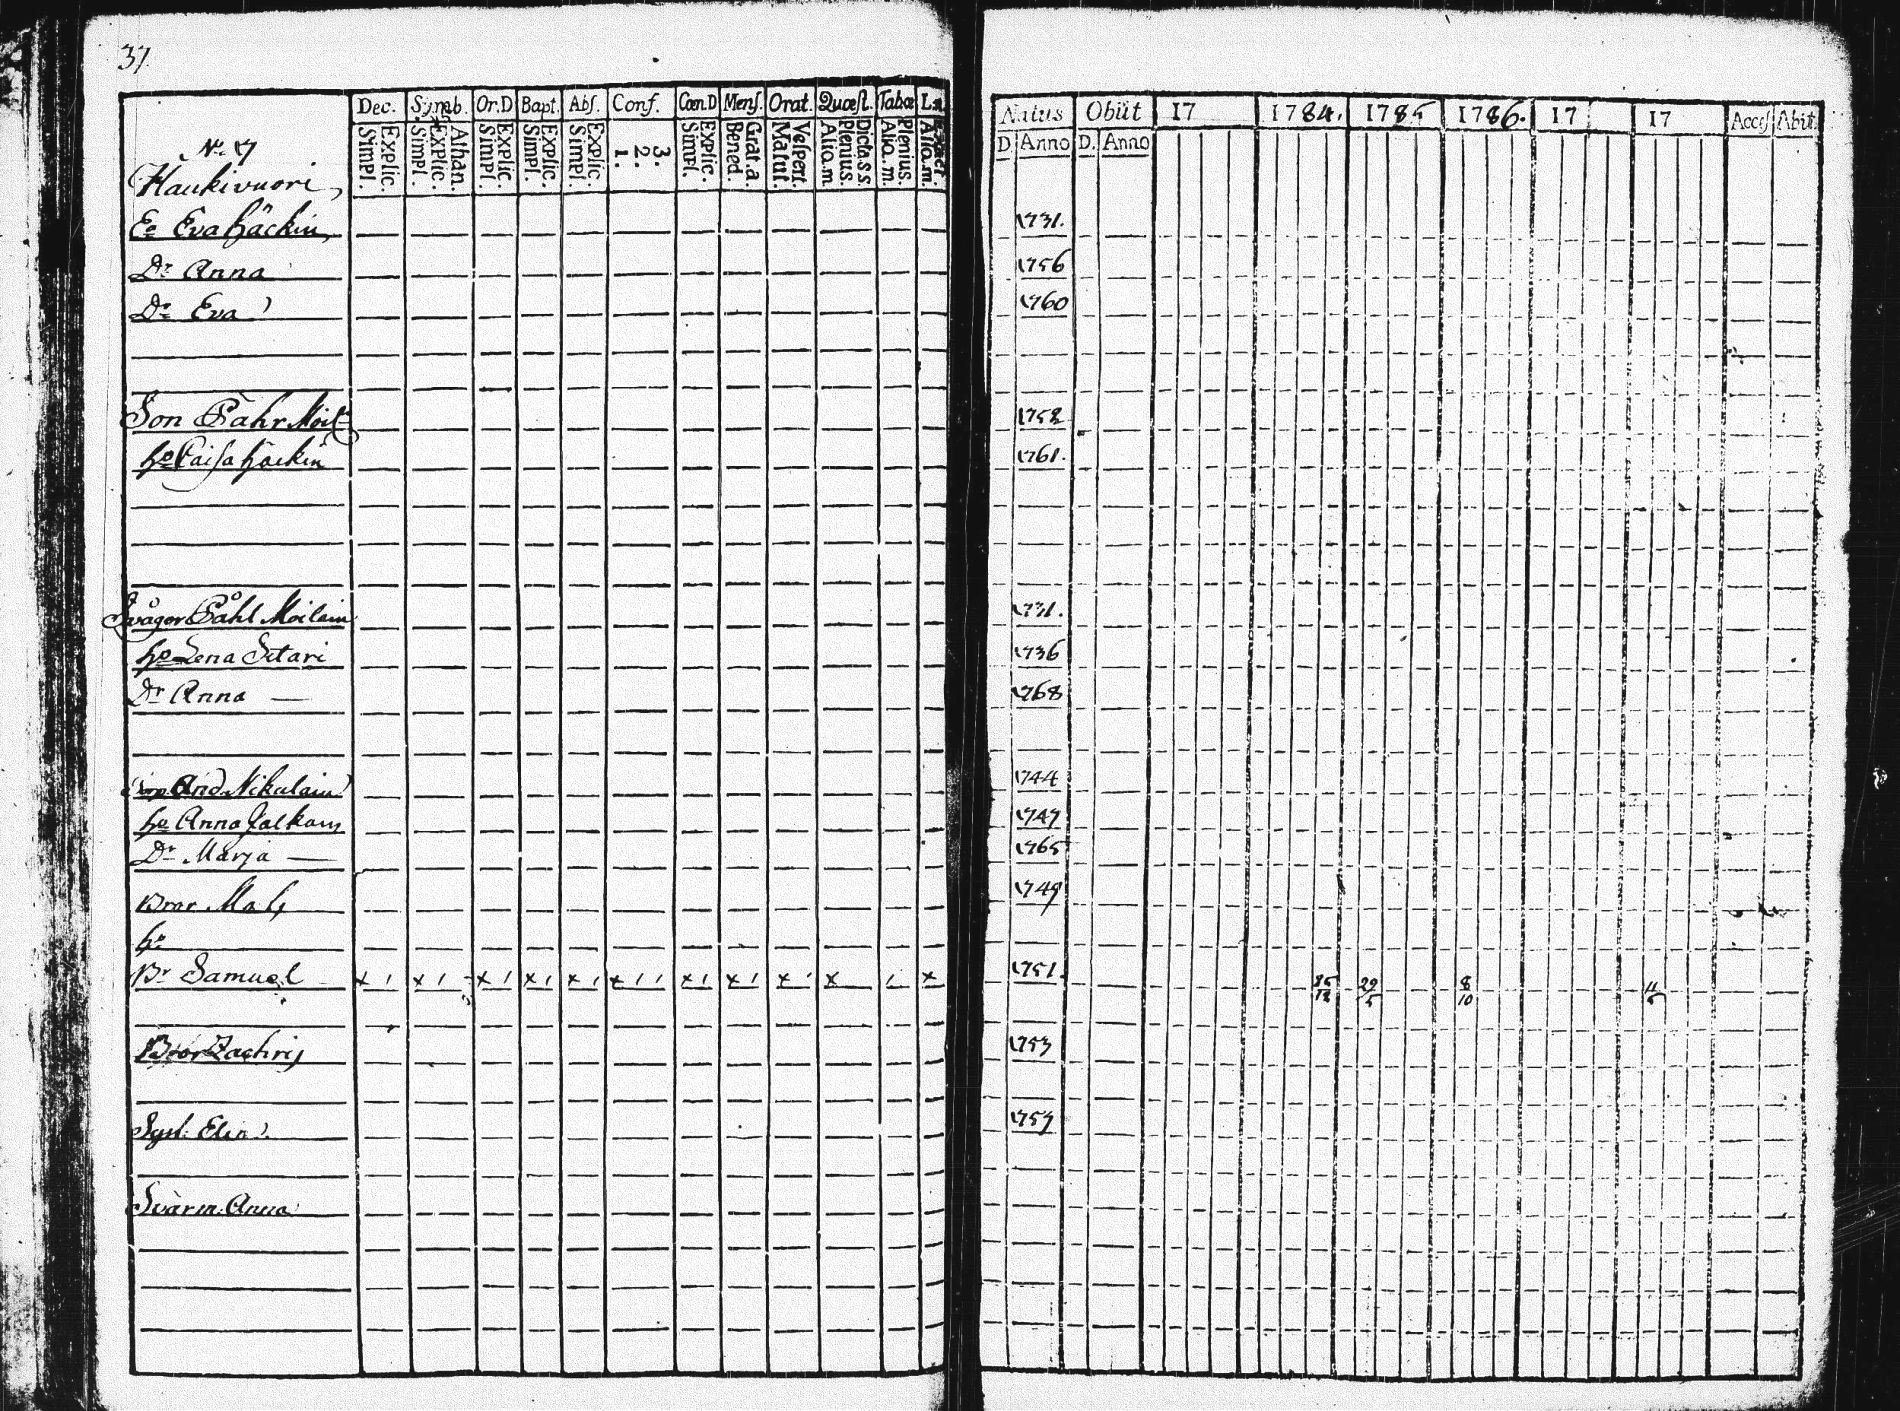 37.
Dec. Symb. Or.D Bapt. Abſ. Conf. Cœn.D Menſ. Orat. Quæſt. Tabæ
Simpl. Explic. Simpl. Explic. Athan. Simpl. Explic. Simpl. Explic. Simpl. Explic. 1. 2. 3. Simpl. Explic. Bened. Grat. a. Matut. Veſpert. Alio. m. Plenius. Dicta s s Alio. m. Plenius. Alio. m.
Natus Obiit 17 1784. 1785 1786. 17 17 Acceſ Abit
D. Anno D. Anno
No 17
Haukivuori,
Ea Eva Häckin, 1731.
Dr Anna 1756
Dr Eva 1760
Son Påhr Moil 1758
ho Caisa Häckin 1761.
Svåger Påhl Moilain 1731.
ho Lena Sitari 1736
Dr Anna — 1768
And. Nikulain 1744
ho Anna Jalkain 1747
Dr Marja — 1765
Bror Mats 1749
ho
Br Samuel x 1 x 1 x 1 x 1 x 1 x 1 1 x 1 x 1 x 1 x 1 x 1751. 25/12 29/5 8/10 11/5
Bror Zachris 1753
Syst. Elin 1757
Svärm. Anna